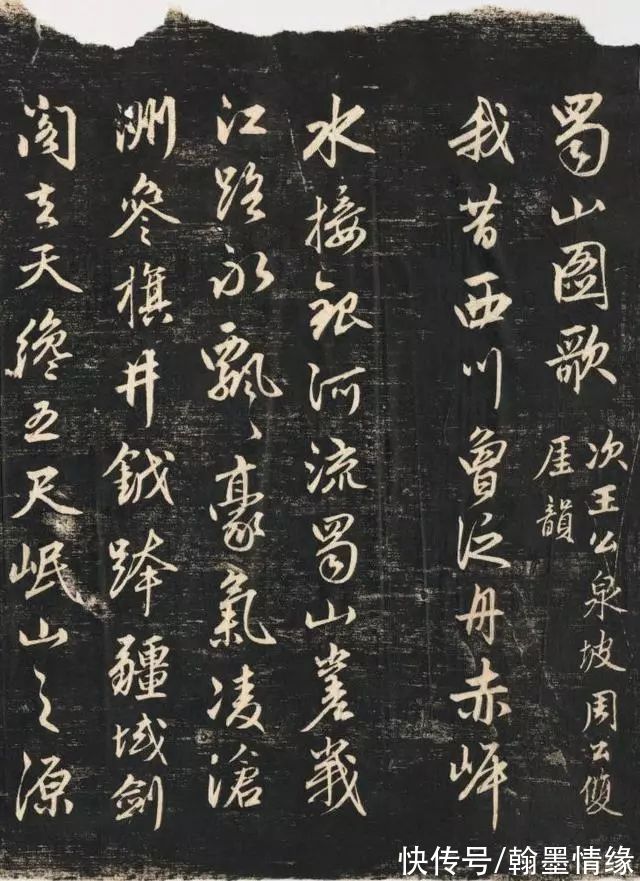 蜀山圖歌
次王公泉坡周公雙
厓韻
我昔西川曾泛舟赤岸
水接銀河流蜀山嵳峩
江路永飄〻豪氣凌滄
洲參旗井鉞疆域劍
閣去天纔五尺岷山之源
快传号/翰墨情缘